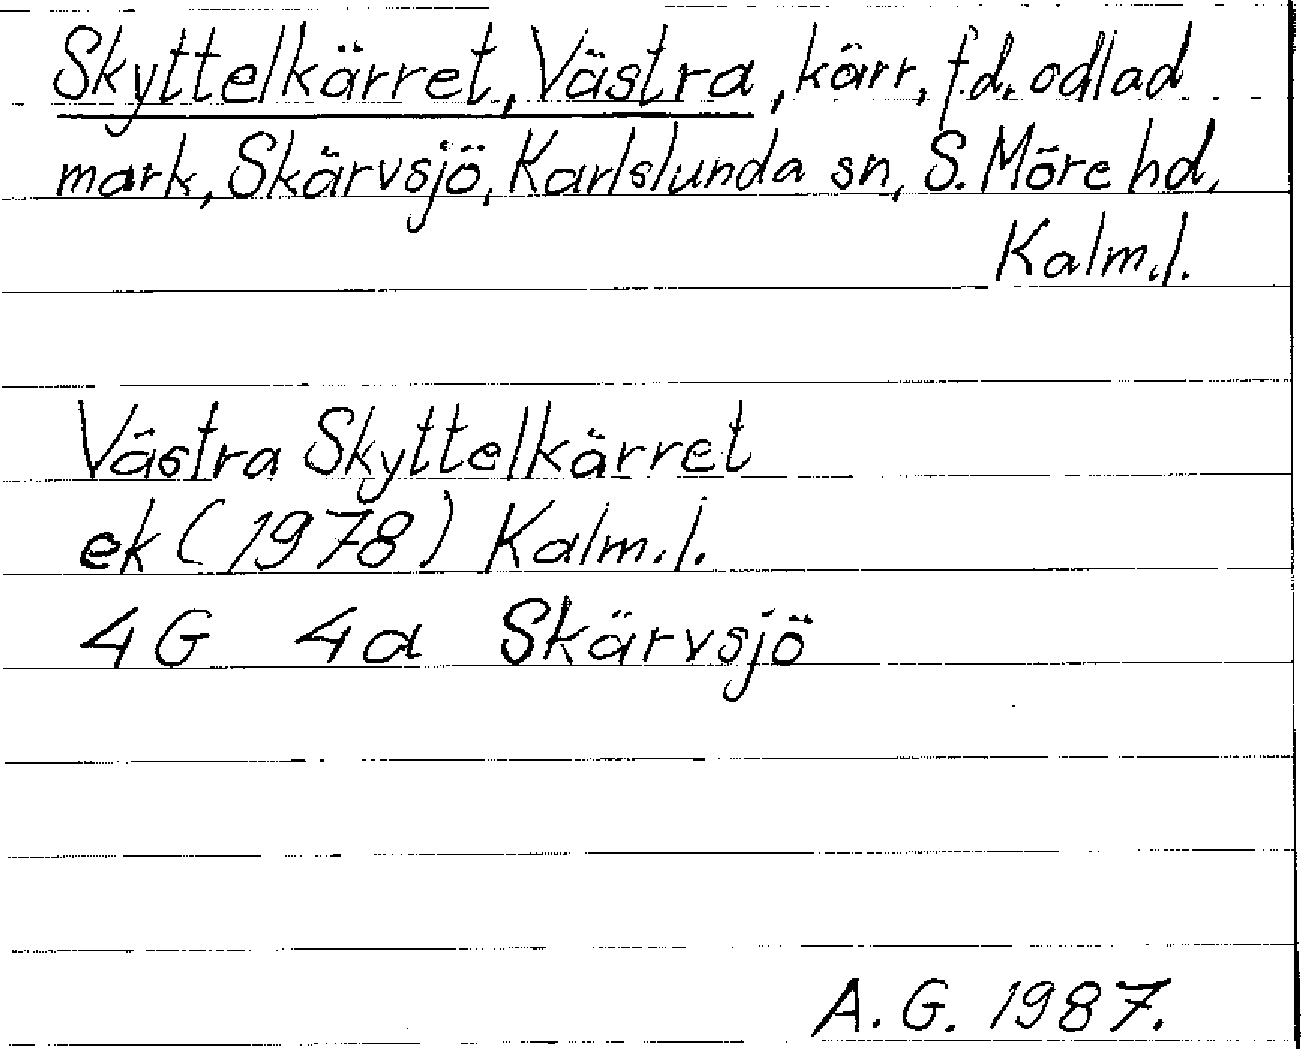 Skyttelkärret, Västra, kärr, f.d. odlad
mark, Skärvsjö, Karlslunda sn, S. Möre hd,
Kalm.l.
Västra Skyttelkärret
ek (1978) Kalm.l.
4G 4a Skärvsjö
A.G. 1987.